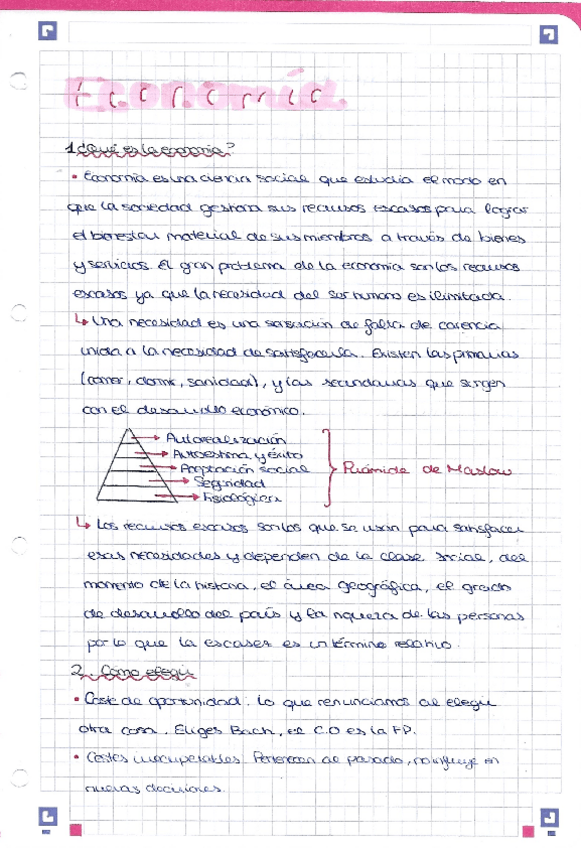 Economía
1. ¿Qué es la economía?
• Economía es una ciencia social que estudia el modo en
que la sociedad gestiona sus recursos escasos para lograr
el bienestar material de sus miembros a través de bienes
y servicios. El gran problema de la economía son los recursos
escasos ya que la necesidad del ser humano es ilimitada.
↳ Una necesidad es una sensación de falta de carencia
unida a la necesidad de satisfacerla. Existen las primarias
(comer, dormir, sanidad), y las secundarias que surgen
con el desarrollo económico.
Autorealización
Autoestima y éxito
Aceptación social
Seguridad
Fisiológica
Pirámide de Maslow
↳ Los recursos escasos son los que se usan para satisfacer
esas necesidades y dependen de la clase social, del
momento de la historia, el área geográfica, el grado
de desarrollo del país y la riqueza de las personas
por lo que la escasez es un término relativo.
2. Cómo elegir
• Coste de oportunidad: lo que renunciamos al elegir
otra cosa. Eliges Bach, el C.O es la FP.
• Costes irrecuperables. Pertenecen al pasado, no influye en
nuevas decisiones.